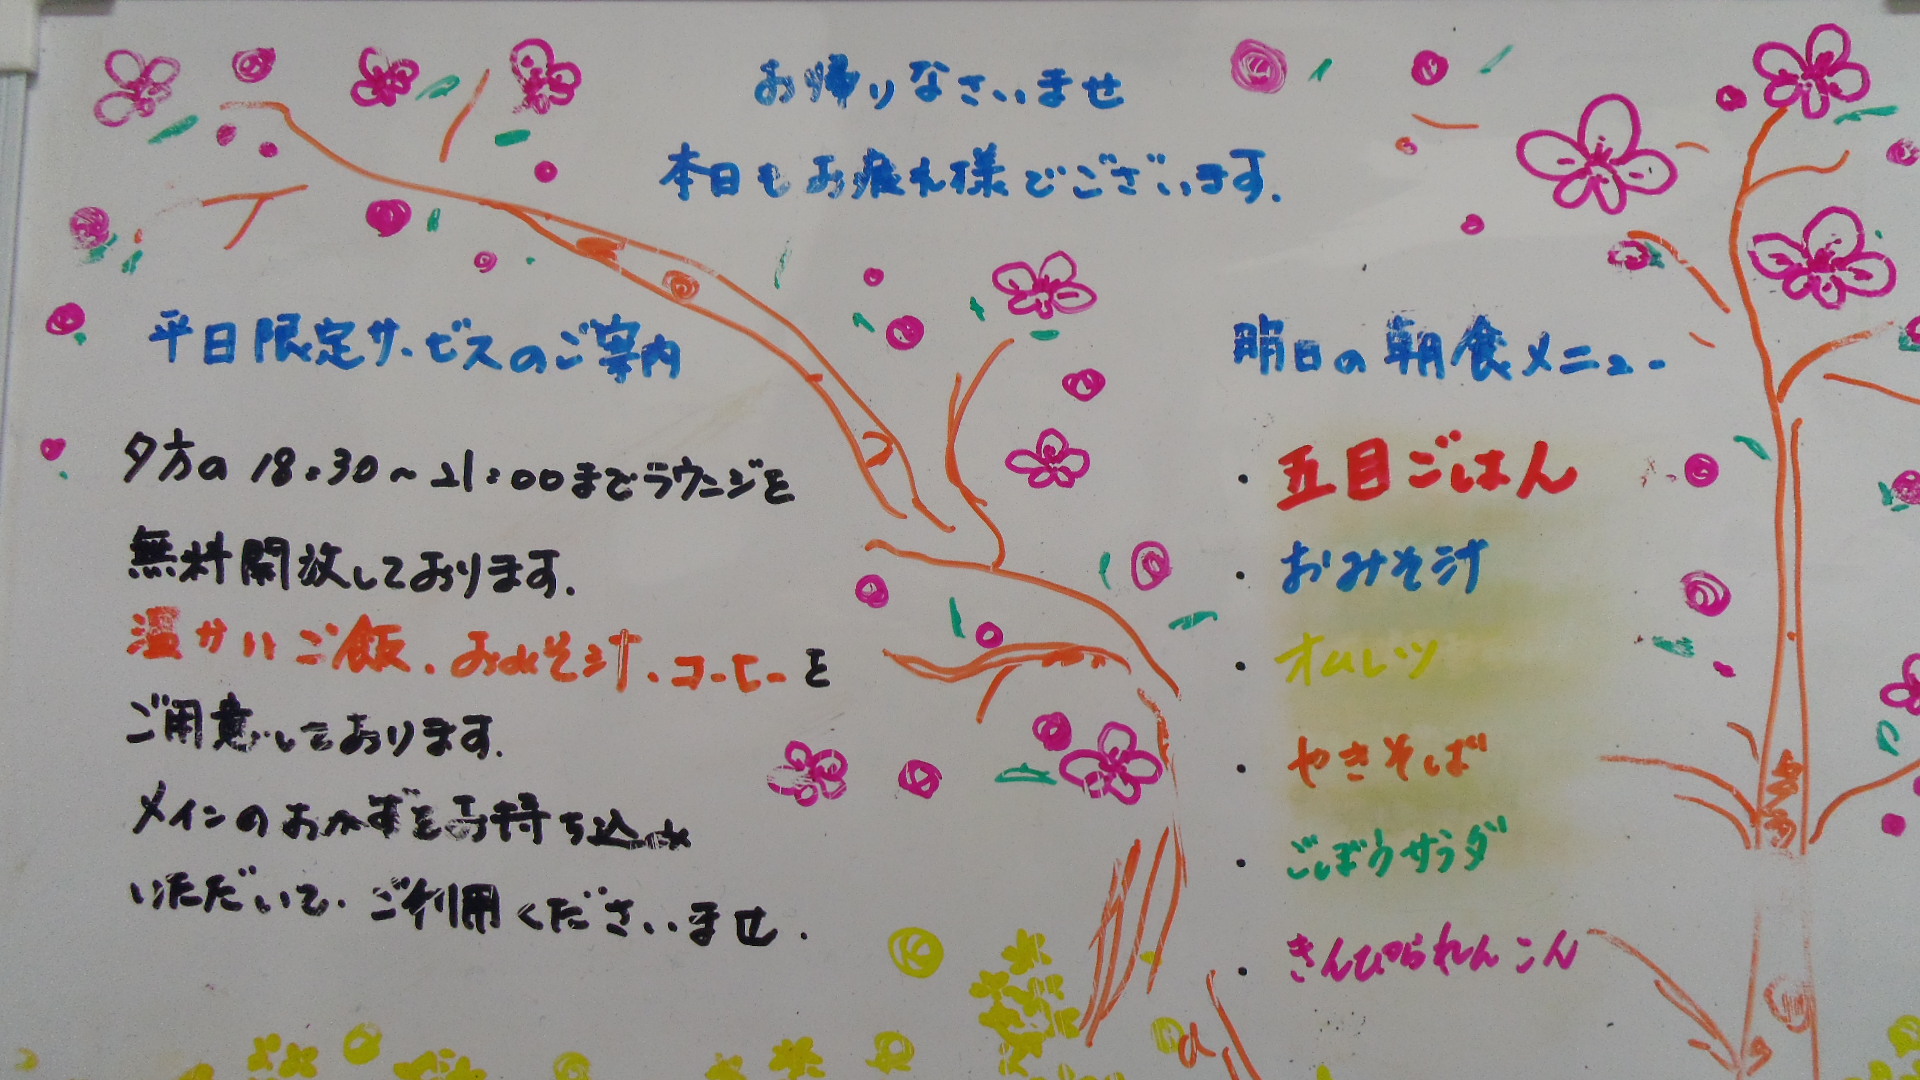 お帰りなさいませ
本日もお疲れ様でございます.
平日限定サービスのご案内
夕方の 18:30〜21:00までラウンジを
無料開放しております.
温かいご飯、おみそ汁、コーヒーを
ご用意しております.
メインのおかずをお持ち込み
いただいて、ご利用くださいませ.
明日の朝食メニュー
・五目ごはん
・おみそ汁
・オムレツ
・やきそば
・ごぼうサラダ
・きんぴられんこん